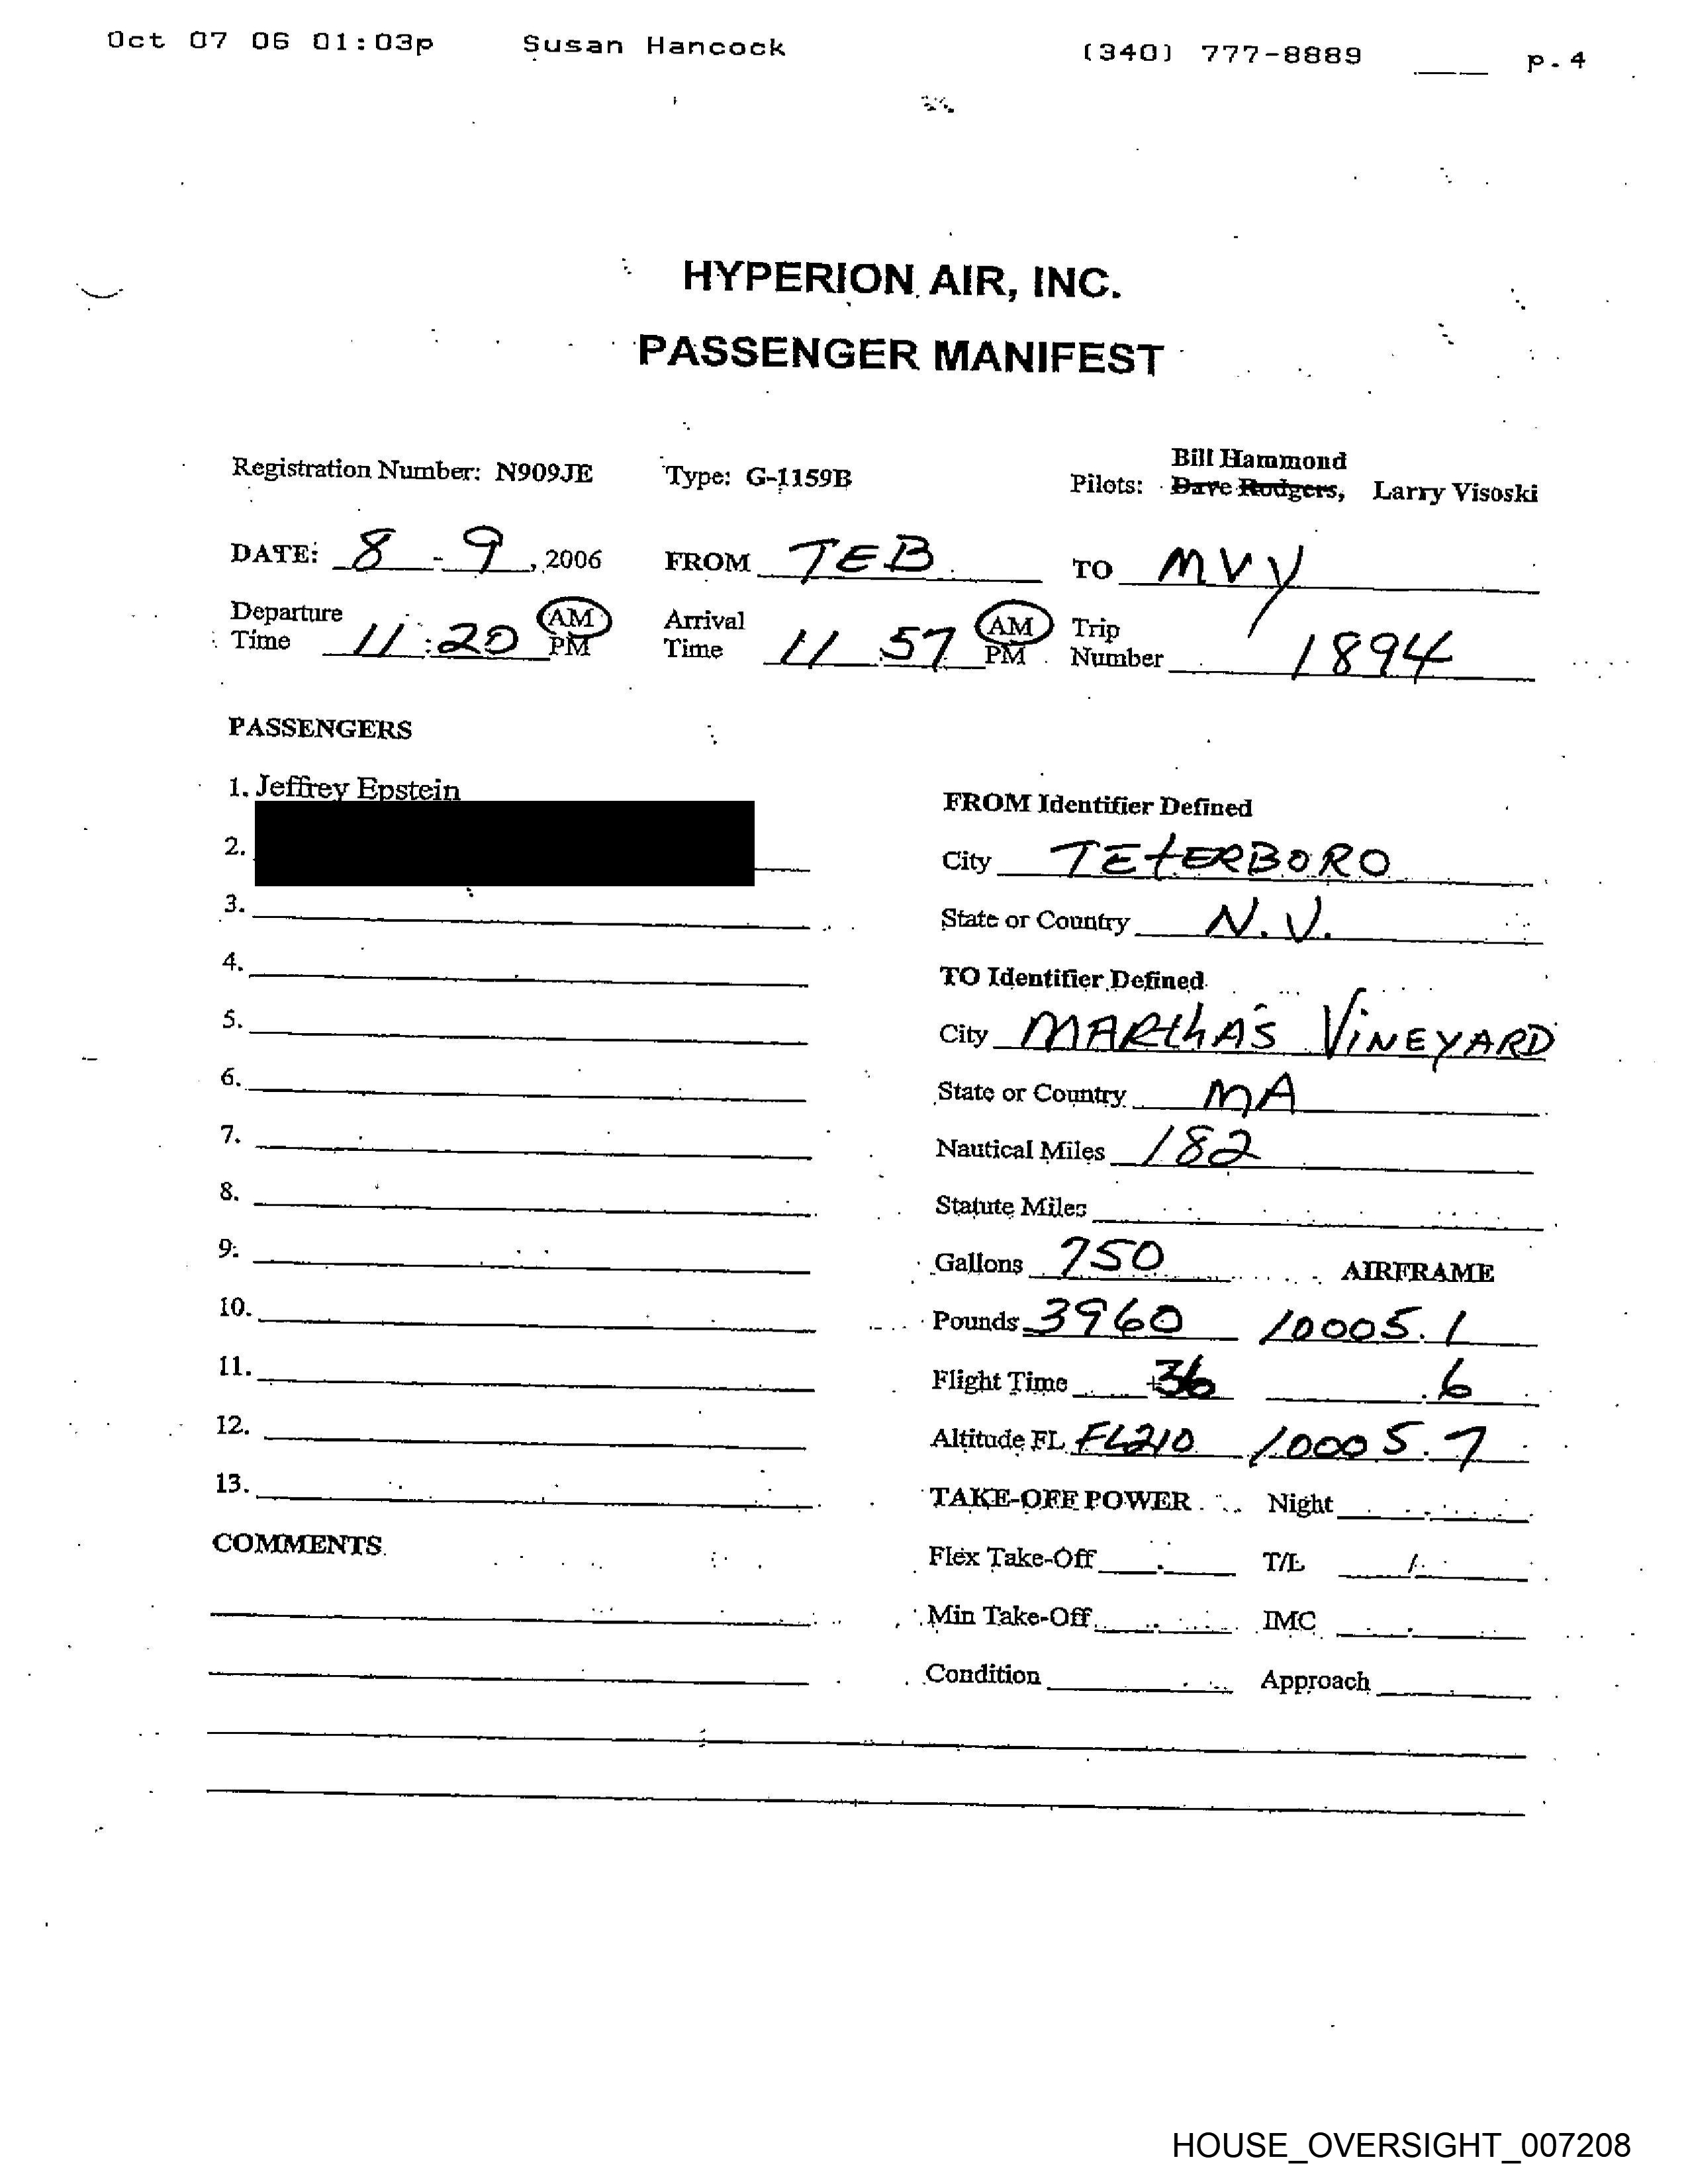 Oct 07 06 01:03p Susan Hancock (340) 777-8889 p.4
HYPERION AIR, INC.
PASSENGER MANIFEST
Bill Hammond
Registration Number: N909JE Type: G-1159B Pilots: Dave Rodgers, Larry Visoski
DATE: 8 - 9, 2006 FROM TEB TO MVY
Departure Time 11:20 AM PM Arrival Time 11:57 AM PM Trip Number 1894
PASSENGERS
1. Jeffrey Epstein
2.
3.
4.
5.
6.
7.
8.
9.
10.
11.
12.
13.
COMMENTS
FROM Identifier Defined
City TEtERBORO
State or Country N.V.
TO Identifier Defined
City MARthA'S ViNEYARD
State or Country MA
Nautical Miles 182
Statute Miles
Gallons 750 AIRFRAME
Pounds 3960 10005.1
Flight Time +36 .6
Altitude FL FL210 10005.7
TAKE-OFF POWER Night
Flex Take-Off T/L /
Min Take-Off IMC
Condition Approach
HOUSE_OVERSIGHT_007208